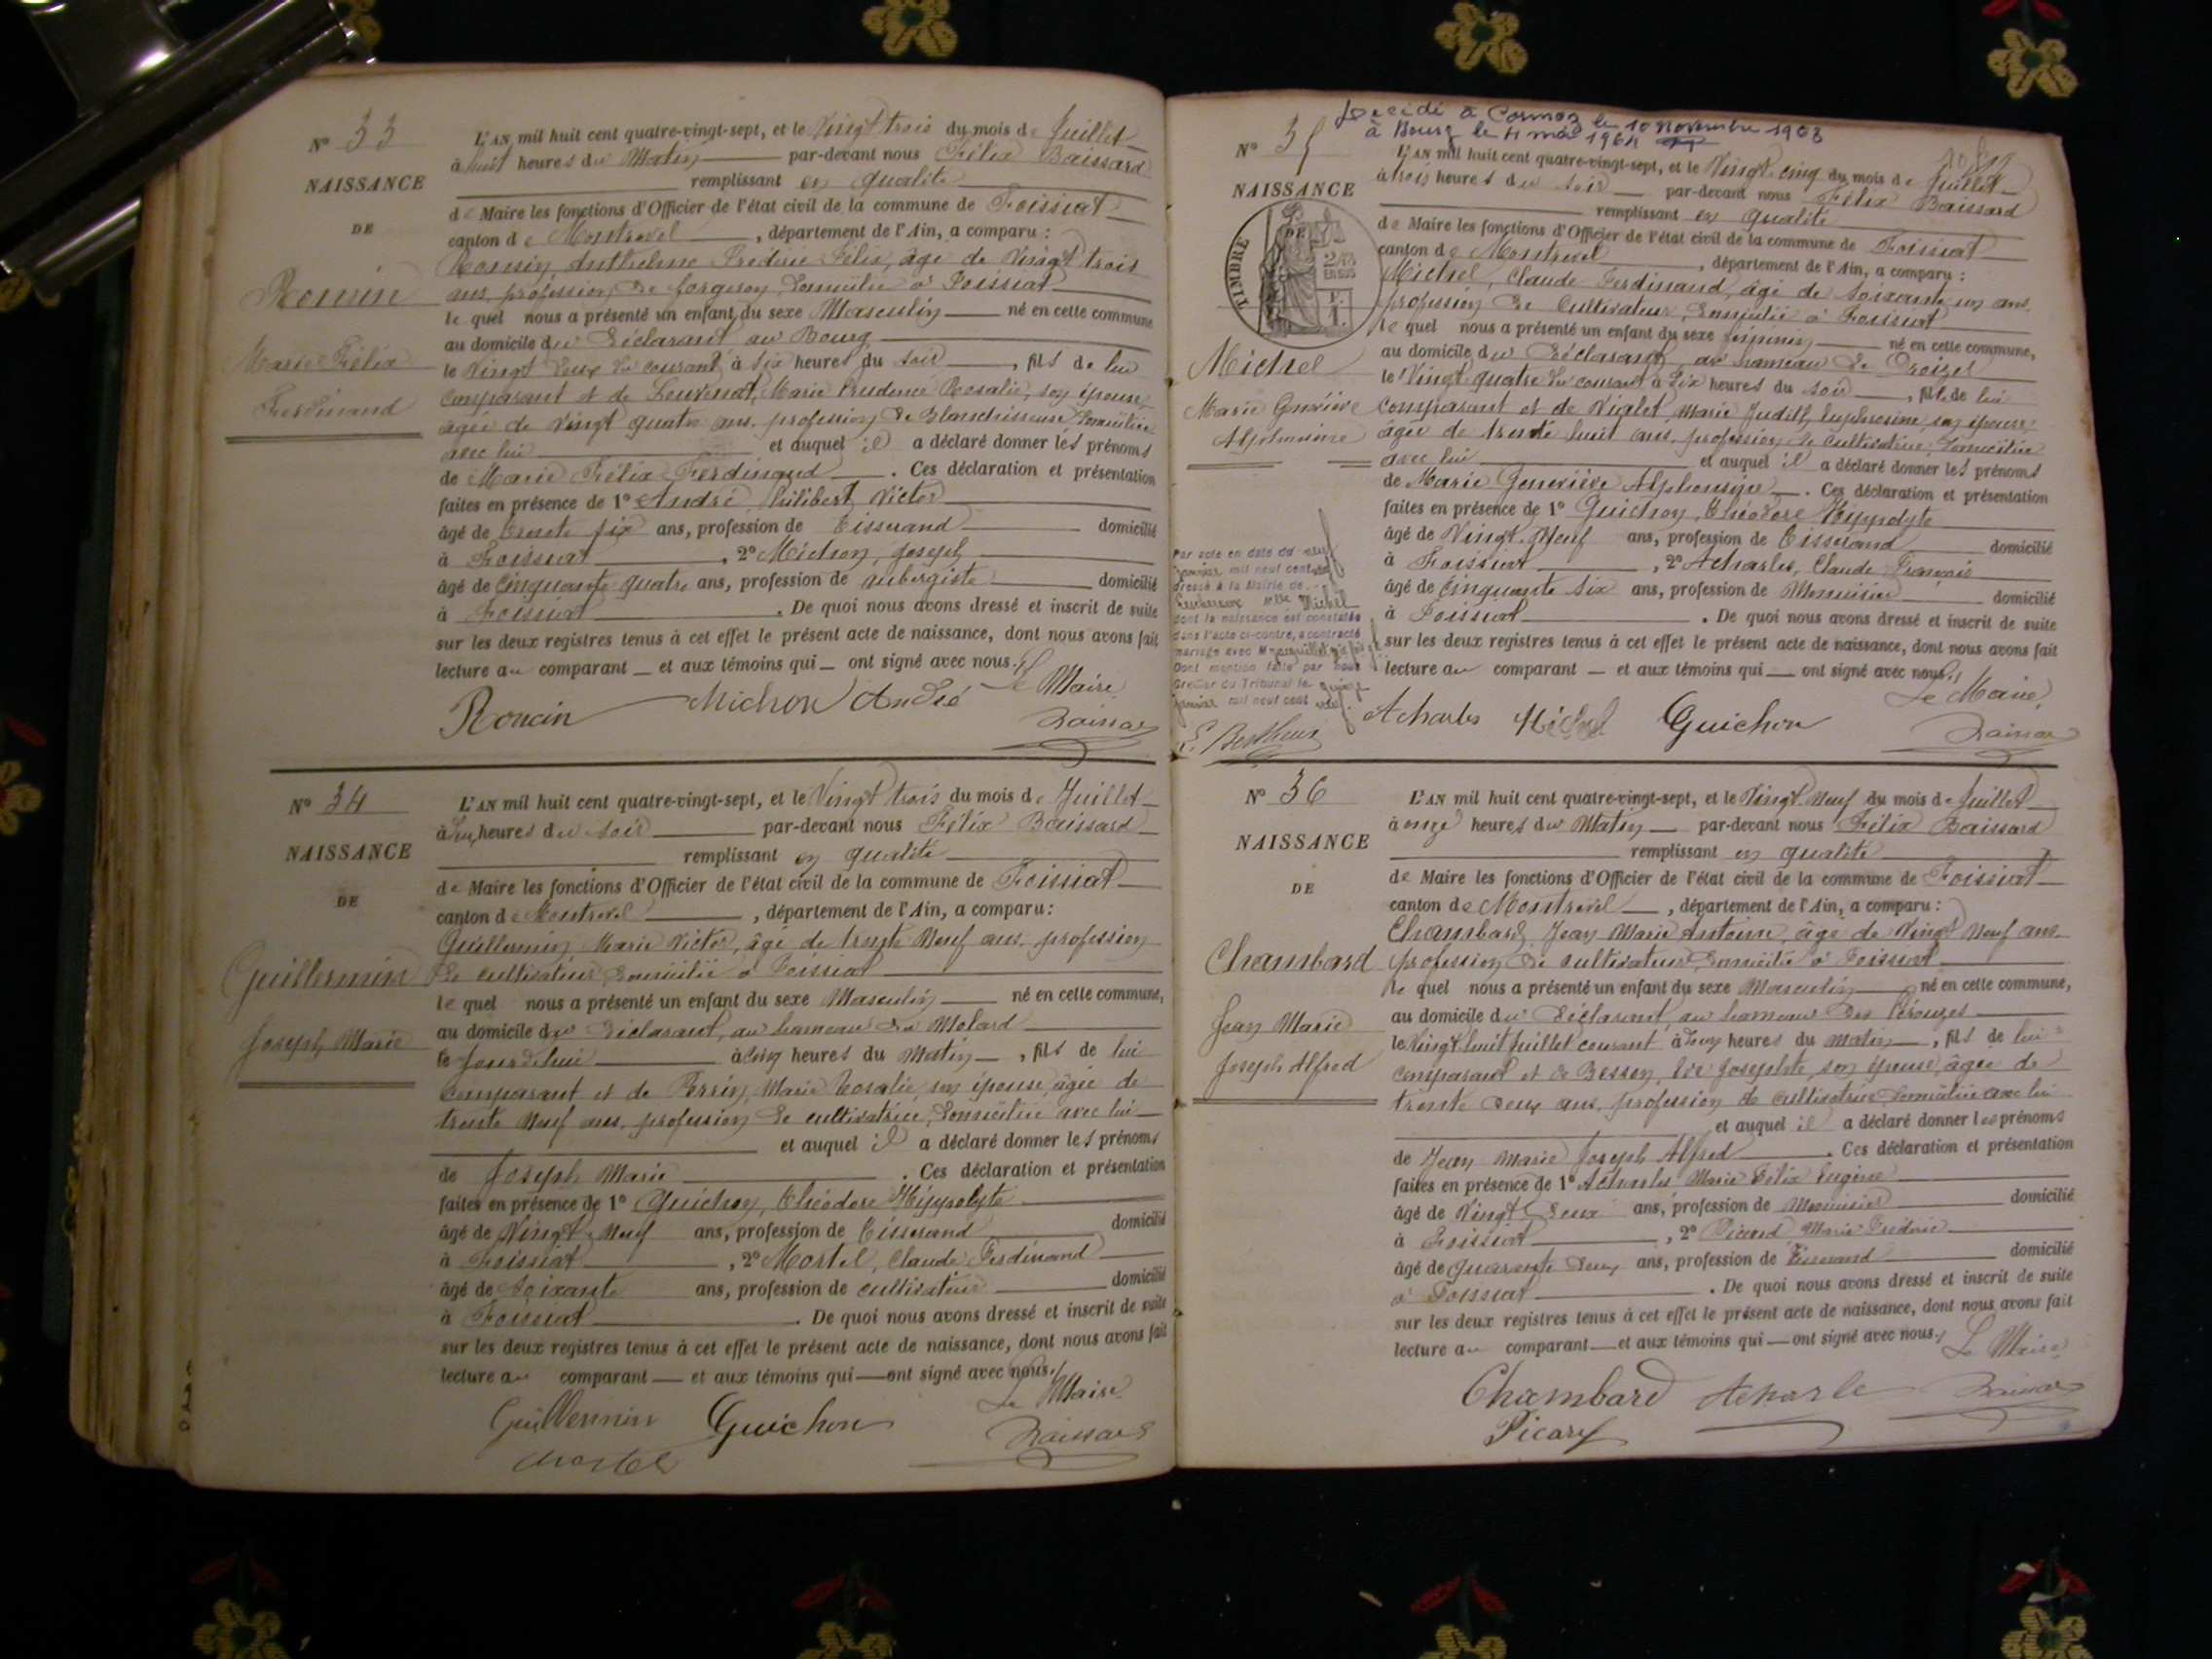 N° 33
NAISSANCE
DE
Roncin
Marie Félix
Ferdinand
L'AN mil huit cent quatre-vingt-sept, et le Vingt trois du mois de Juillet
à huit heures du Matin par-devant nous Félix Baissard
remplissant en qualité
de Maire les fonctions d'Officier de l'état civil de la commune de Foissiat
canton de Montrevel, département de l'Ain, a comparu :
Roncin, Anthelme Frédéric Félix, âgé de Vingt trois
ans, profession de forgeron, domicilié à Foissiat
lequel nous a présenté un enfant du sexe Masculin né en cette commune
au domicile du déclarant au Bourg
le Vingt deux du courant à six heures du soir, fils de lui
comparant et de Marie Prudence Rosalie, son épouse,
âgée de Vingt quatre ans, profession de Blanchisseuse domiciliée
avec lui et auquel il a déclaré donner les prénoms
de Marie Félix Ferdinand. Ces déclaration et présentation
faites en présence de 1° André, Philibert Victor
âgé de trente six ans, profession de Tisserand domicilié
à Foissiat, 2° Michon, Joseph
âgé de Cinquante quatre ans, profession de aubergiste domicilié
à Foissiat. De quoi nous avons dressé et inscrit de suite
sur les deux registres tenus à cet effet le présent acte de naissance, dont nous avons fait
lecture au comparant et aux témoins qui ont signé avec nous.
Le Maire
Roncin Michon André
Baissard
N° 34
NAISSANCE
DE
Guillermin
Joseph Marie
L'AN mil huit cent quatre-vingt-sept, et le Vingt trois du mois de Juillet
à heures du soir par-devant nous Félix Baissard
remplissant en qualité
de Maire les fonctions d'Officier de l'état civil de la commune de Foissiat
canton de Montrevel, département de l'Ain, a comparu :
Guillermin, Marie Victor, âgé de trente Neuf ans, profession
de cultivateur domicilié à Foissiat
lequel nous a présenté un enfant du sexe Masculin né en cette commune,
au domicile du déclarant, au hameau du Molard
le Jourd'hui à cinq heures du Matin, fils de lui
comparant et de Perrin, Marie Rosalie, son épouse, âgée de
trente Neuf ans, profession de cultivatrice, domiciliée avec lui
et auquel il a déclaré donner les prénoms
de Joseph Marie. Ces déclaration et présentation
faites en présence de 1° Guichon, Théodore Hippolyte
âgé de Vingt Neuf ans, profession de Tisserand domicilié
à Foissiat, 2° Mortel, Claude Ferdinand
âgé de Soixante ans, profession de cultivateur domicilié
à Foissiat. De quoi nous avons dressé et inscrit de suite
sur les deux registres tenus à cet effet le présent acte de naissance, dont nous avons fait
lecture au comparant et aux témoins qui ont signé avec nous.
Le Maire
Guillermin Guichon
Mortel Baissard
Décédé à Cormoz le 10 Novembre 1968
à Bourg le 4 mai 1964
N° 35
NAISSANCE
DE
TIMBRE
EN SUS
Michel
Marie Geneviève
Alphonsine
L'AN mil huit cent quatre-vingt-sept, et le Vingt cinq du mois de Juillet
à trois heures du soir par-devant nous Félix Baissard
remplissant en qualité
de Maire les fonctions d'Officier de l'état civil de la commune de Foissiat
canton de Montrevel, département de l'Ain, a comparu :
Michel, Claude Ferdinand, âgé de soixante un ans
profession de Cultivateur, domicilié à Foissiat
lequel nous a présenté un enfant du sexe féminin né en cette commune,
au domicile du déclarant, au hameau de
le Vingt quatre du courant à six heures du soir, fille de lui
comparant et de Vialet, Marie Judith Euphrosine, son épouse
âgée de trente huit ans, profession de cultivatrice, domiciliée
avec lui et auquel il a déclaré donner les prénoms
de Marie Geneviève Alphonsine. Ces déclaration et présentation
faites en présence de 1° Guichon, Théodore Hyppolyte
âgé de Vingt Neuf ans, profession de Tisserand domicilié
à Foissiat, 2° Acharles, Claude François
âgé de Cinquante six ans, profession de Menuisier domicilié
à Foissiat. De quoi nous avons dressé et inscrit de suite
sur les deux registres tenus à cet effet le présent acte de naissance, dont nous avons fait
lecture au comparant et aux témoins qui ont signé avec nous.
Le Maire,
Acharles Michel Guichon
Baissard
Par acte en date du neuf
Janvier mil neuf cent
dressé à la Mairie de
Mlle Michel
dont la naissance est constatée
dans l'acte ci-contre, a contracté
mariage avec M
Dont mention faite par nous
Greffier du Tribunal le quinze
Janvier mil neuf cent
N° 36
NAISSANCE
DE
Chambard
Jean Marie
Joseph Alfred
L'AN mil huit cent quatre-vingt-sept, et le Vingt Neuf du mois de Juillet
à onze heures du Matin par-devant nous Félix Baissard
remplissant en qualité
de Maire les fonctions d'Officier de l'état civil de la commune de Foissiat
canton de Montrevel, département de l'Ain, a comparu :
Chambard, Jean Marie Antoine, âgé de Vingt Neuf ans
profession de cultivateur domicilié à Foissiat
lequel nous a présenté un enfant du sexe Masculin né en cette commune,
au domicile du déclarant, au hameau des Pérouzes
le Vingt huit Juillet courant à heures du matin, fils de lui
comparant et de Josephte, son épouse, âgée de
trente deux ans, profession de cultivatrice domiciliée avec lui
et auquel il a déclaré donner les prénoms
de Jean Marie Joseph Alfred. Ces déclaration et présentation
faites en présence de 1° Acharles Marie Félix Eugène
âgé de Vingt deux ans, profession de Menuisier domicilié
à Foissiat, 2° Picard, Marie Frédéric
âgé de quarante deux ans, profession de Tisserand domicilié
à Foissiat. De quoi nous avons dressé et inscrit de suite
sur les deux registres tenus à cet effet le présent acte de naissance, dont nous avons fait
lecture au comparant et aux témoins qui ont signé avec nous.
Le Maire
Chambard Acharle Baissard
Picard